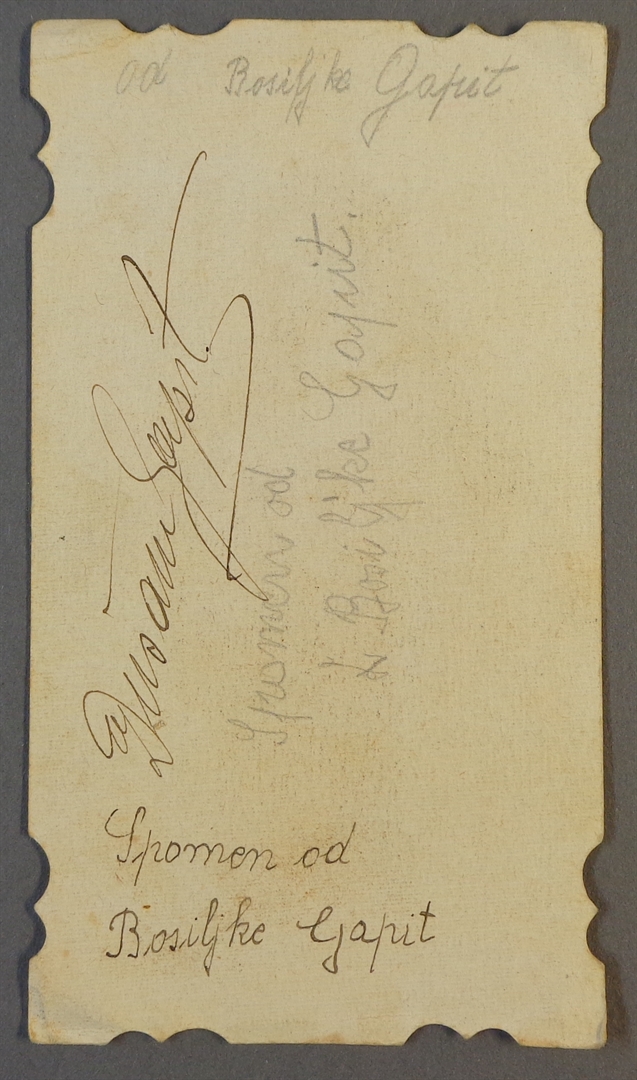 od Bosiljke Gapit
Dušan Gapit.
Spomen od
Bosiljke Gapit.
Spomen od
Bosiljke Gapit